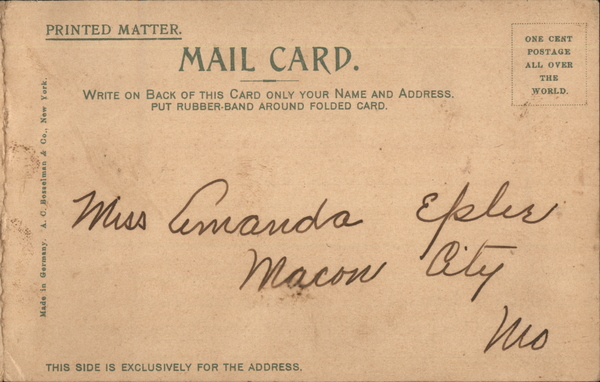 PRINTED MATTER.
MAIL CARD.
WRITE ON BACK OF THIS CARD ONLY YOUR NAME AND ADDRESS.
PUT RUBBER-BAND AROUND FOLDED CARD.
ONE CENT
POSTAGE
ALL OVER
THE
WORLD.
Made in Germany. A. C. Bosselman & Co., New York.
Miss Amanda Epler
Macon City
Mo
THIS SIDE IS EXCLUSIVELY FOR THE ADDRESS.